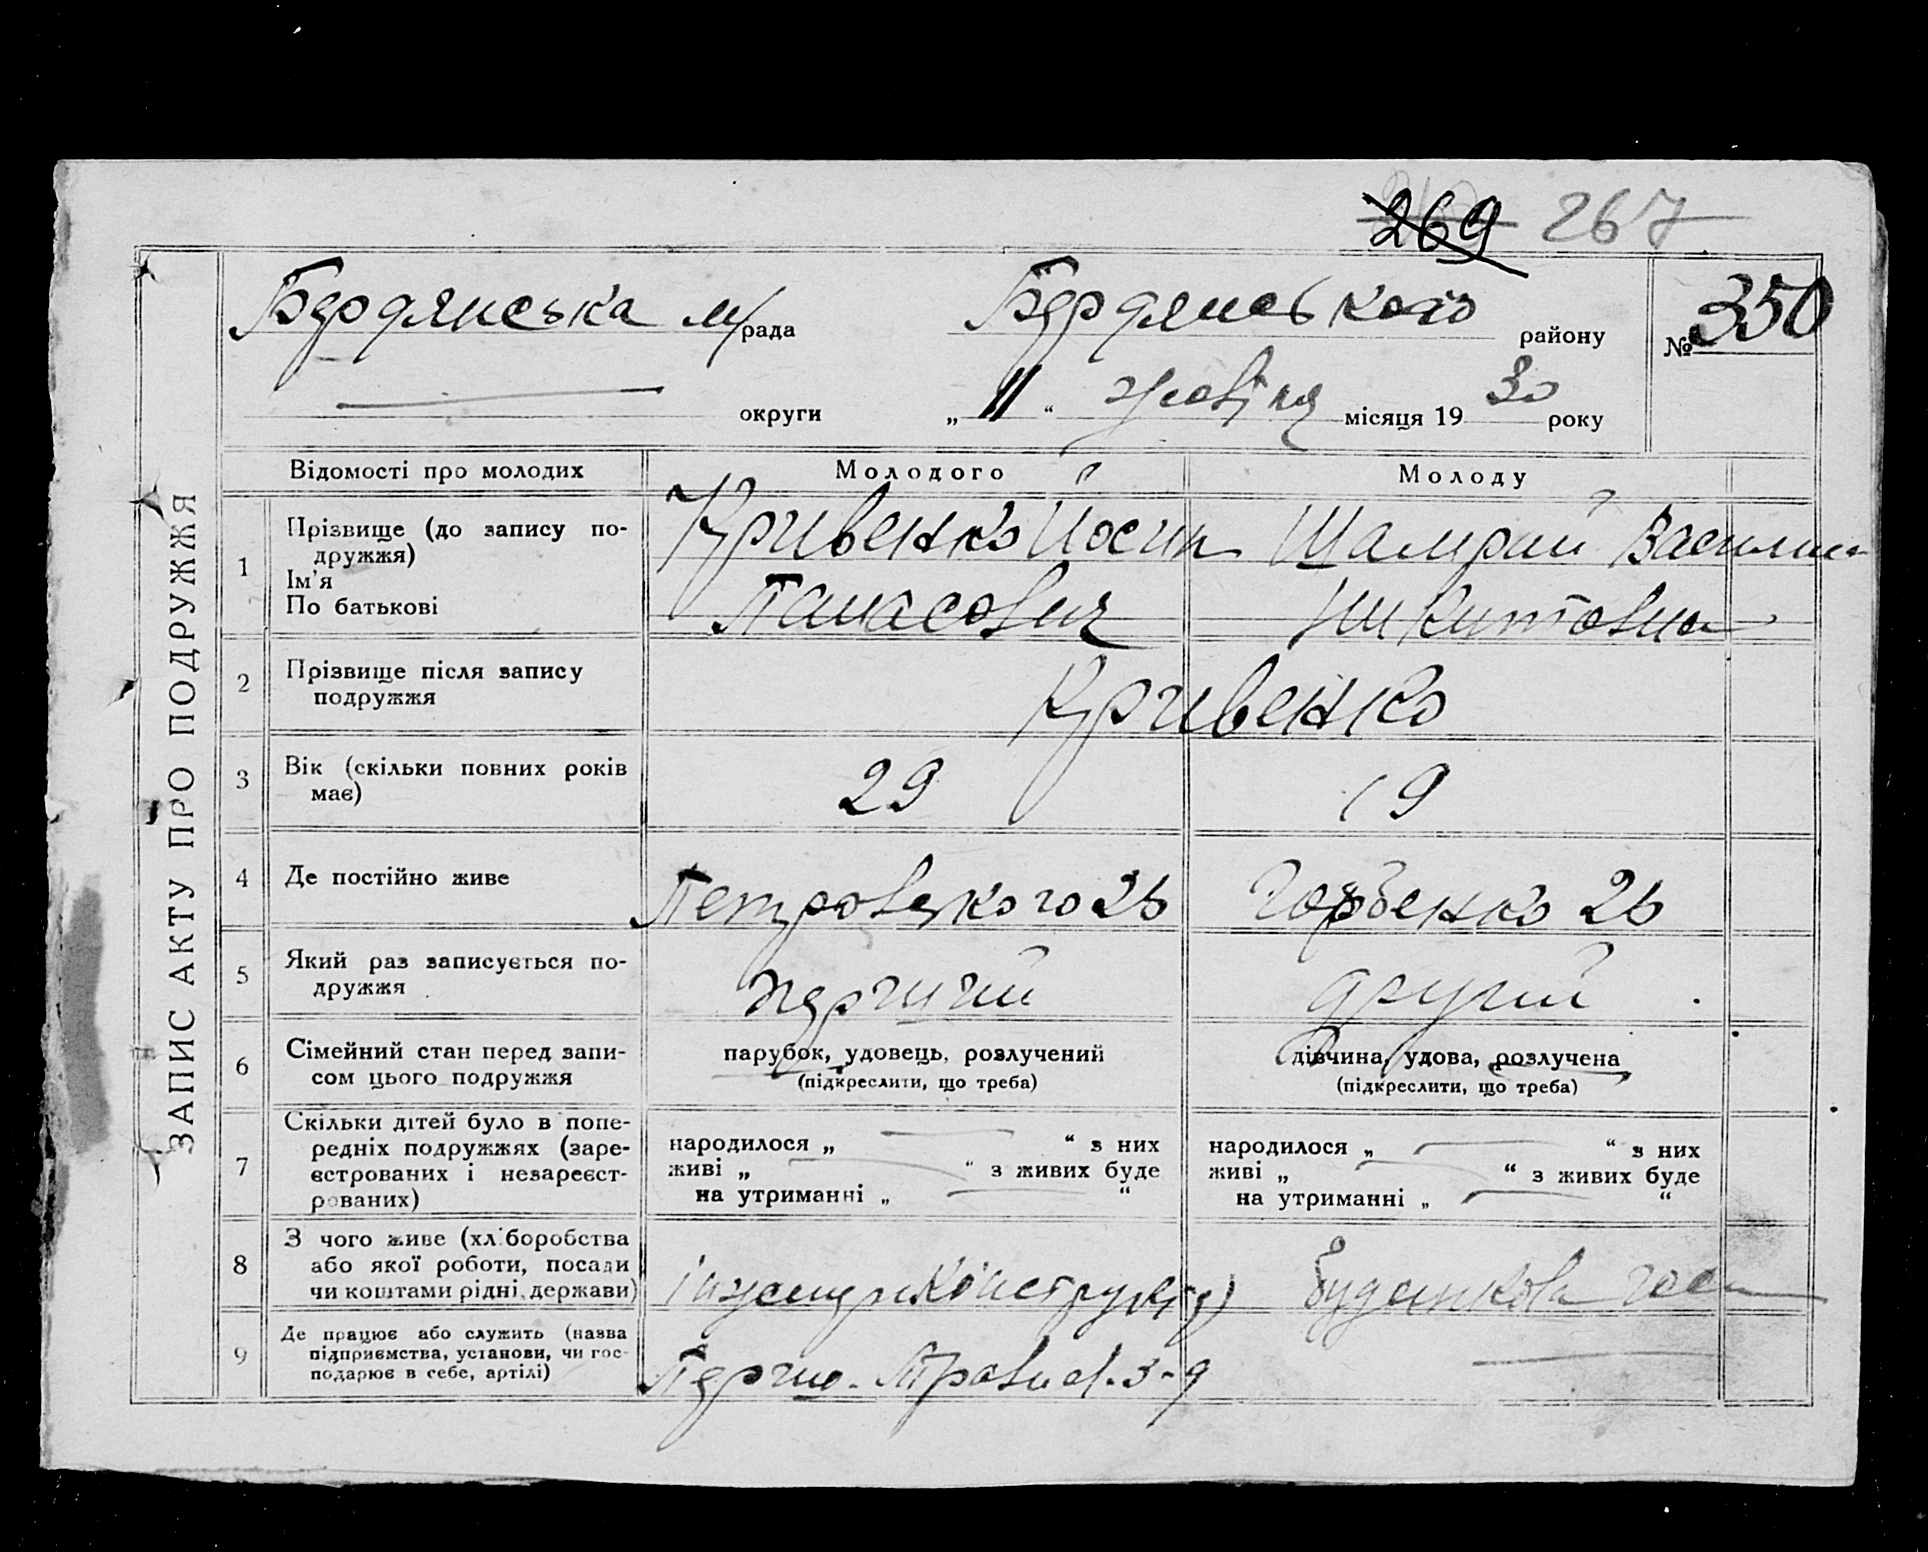 269 267
Бердянська м/рада Бердянського району № 350
округи „ 11 “ жовтня місяця 19 30 року
ЗАПИС АКТУ ПРО ПОДРУЖЖЯ
Відомості про молодих Молодого Молоду
1 Прізвище (до запису по-
дружжя)
Ім'я
По батькові
Кривенко Йосип
Панасович
Шамрай Василина
Никитовна
2 Прізвище після запису
подружжя
Кривенко
3 Вік (скільки повних років
має)
29 19
4 Де постійно живе Петровського 26 Горбенко 26
5 Який раз записується по-
дружжя
перший другий
6 Сімейний стан перед запи-
сом цього подружжя
парубок, удовець, розлучений
(підкреслити, що треба)
дівчина, удова, розлучена
(підкреслити, що треба)
7 Скільки дітей було в попе-
редніх подружжях (заре-
єстрованих і незареєст-
рованих)
народилося „ “ з них
живі „ “ з живих буде
на утриманні „ “
народилося „ “ з них
живі „ “ з живих буде
на утриманні „ “
8 З чого живе (хліборобства
або якої роботи, посади
чи коштами рідні, держави)
інженер конструктор
9 Де працює або служить (назва
підприємства, установи, чи гос-
подарює в себе, артілі)
Першо-Травн. з-д